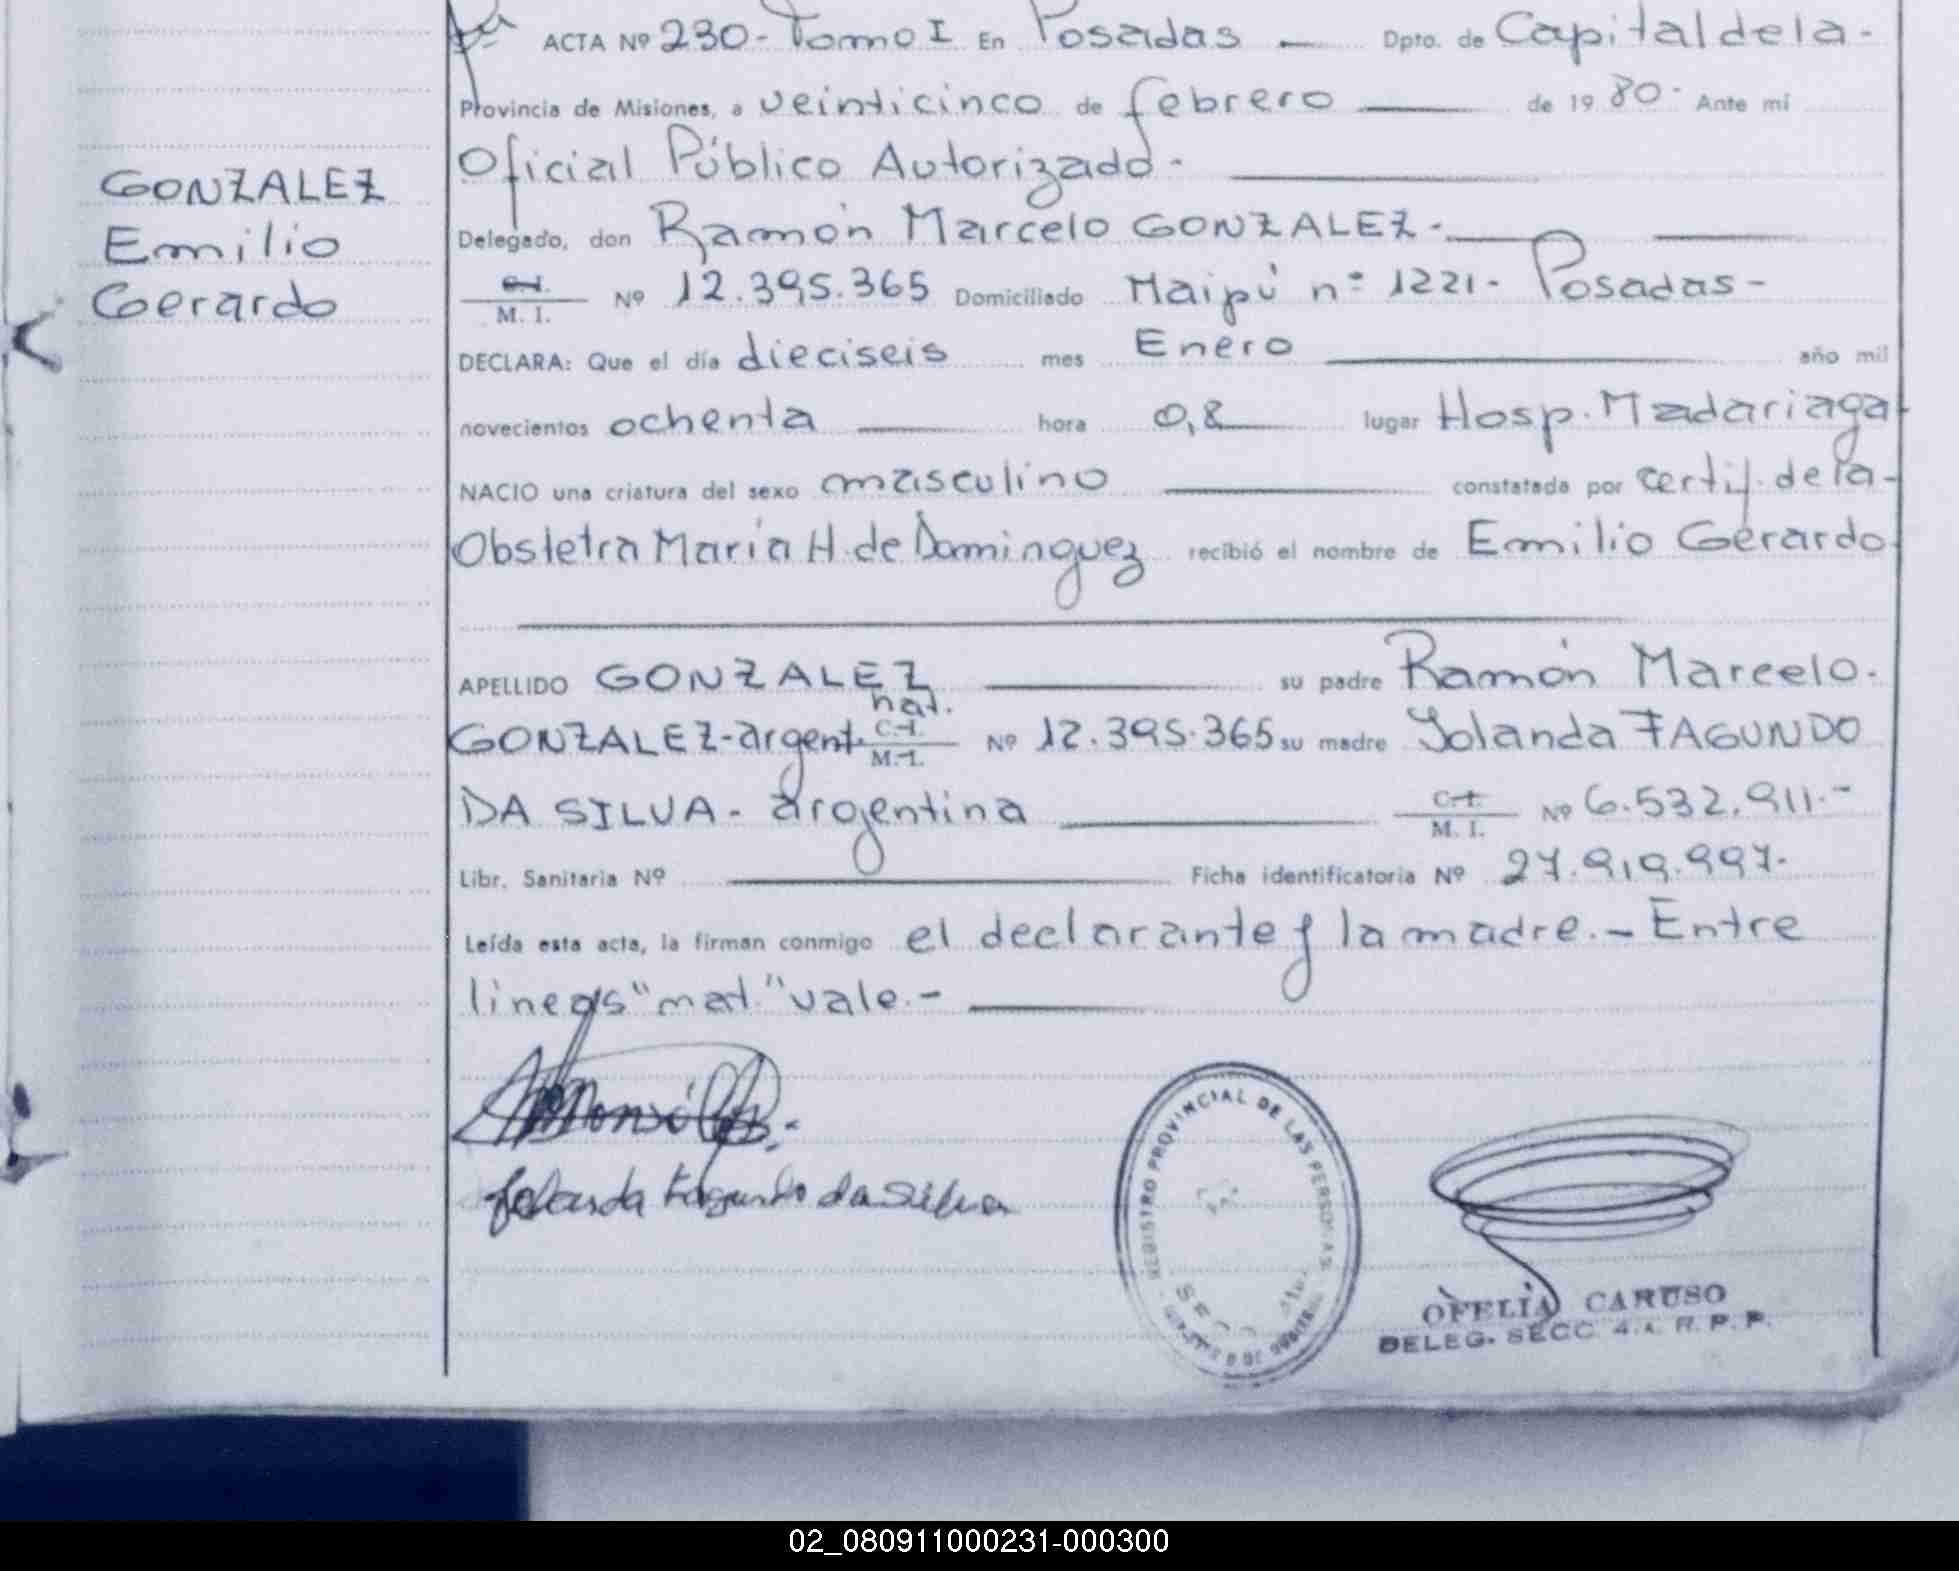 ACTA Nº 230- Tomo I En Posadas — Dpto. de Capital de la-
Provincia de Misiones, a veinticinco de febrero — de 19 80- Ante mí
Oficial Público Autorizado.-
GONZALEZ
Emilio
Gerardo
Delegado, don Ramón Marcelo GONZALEZ-
C.I.
M. I. Nº 12.395.365 Domiciliado Maipú nº 1221- Posadas-
DECLARA: Que el día dieciseis mes Enero — año mil
novecientos ochenta — hora 0,8 — lugar Hosp. Madariaga-
NACIO una criatura del sexo masculino — constatada por certif. de la-
Obstetra María H. de Dominguez recibió el nombre de Emilio Gerardo
APELLIDO GONZALEZ — su padre Ramón Marcelo.
nat.
GONZALEZ-argent. C.I. M.I. Nº 12.395.365 su madre Yolanda FAGUNDO
DA SILVA- argentina — C.I. M. I. Nº 6.532.911.-
Libr. Sanitaria Nº — Ficha identificatoria Nº 27.919.997-
Leída esta acta, la firman conmigo el declarante y la madre.- Entre
lineas "mat." vale.-
Yolanda Fagundo da Silva
REGISTRO PROVINCIAL DE LAS PERSONAS
SECC
OFELIA CARUSO
DELEG. SECC. 4.A. R. P. P.
02_080911000231-000300